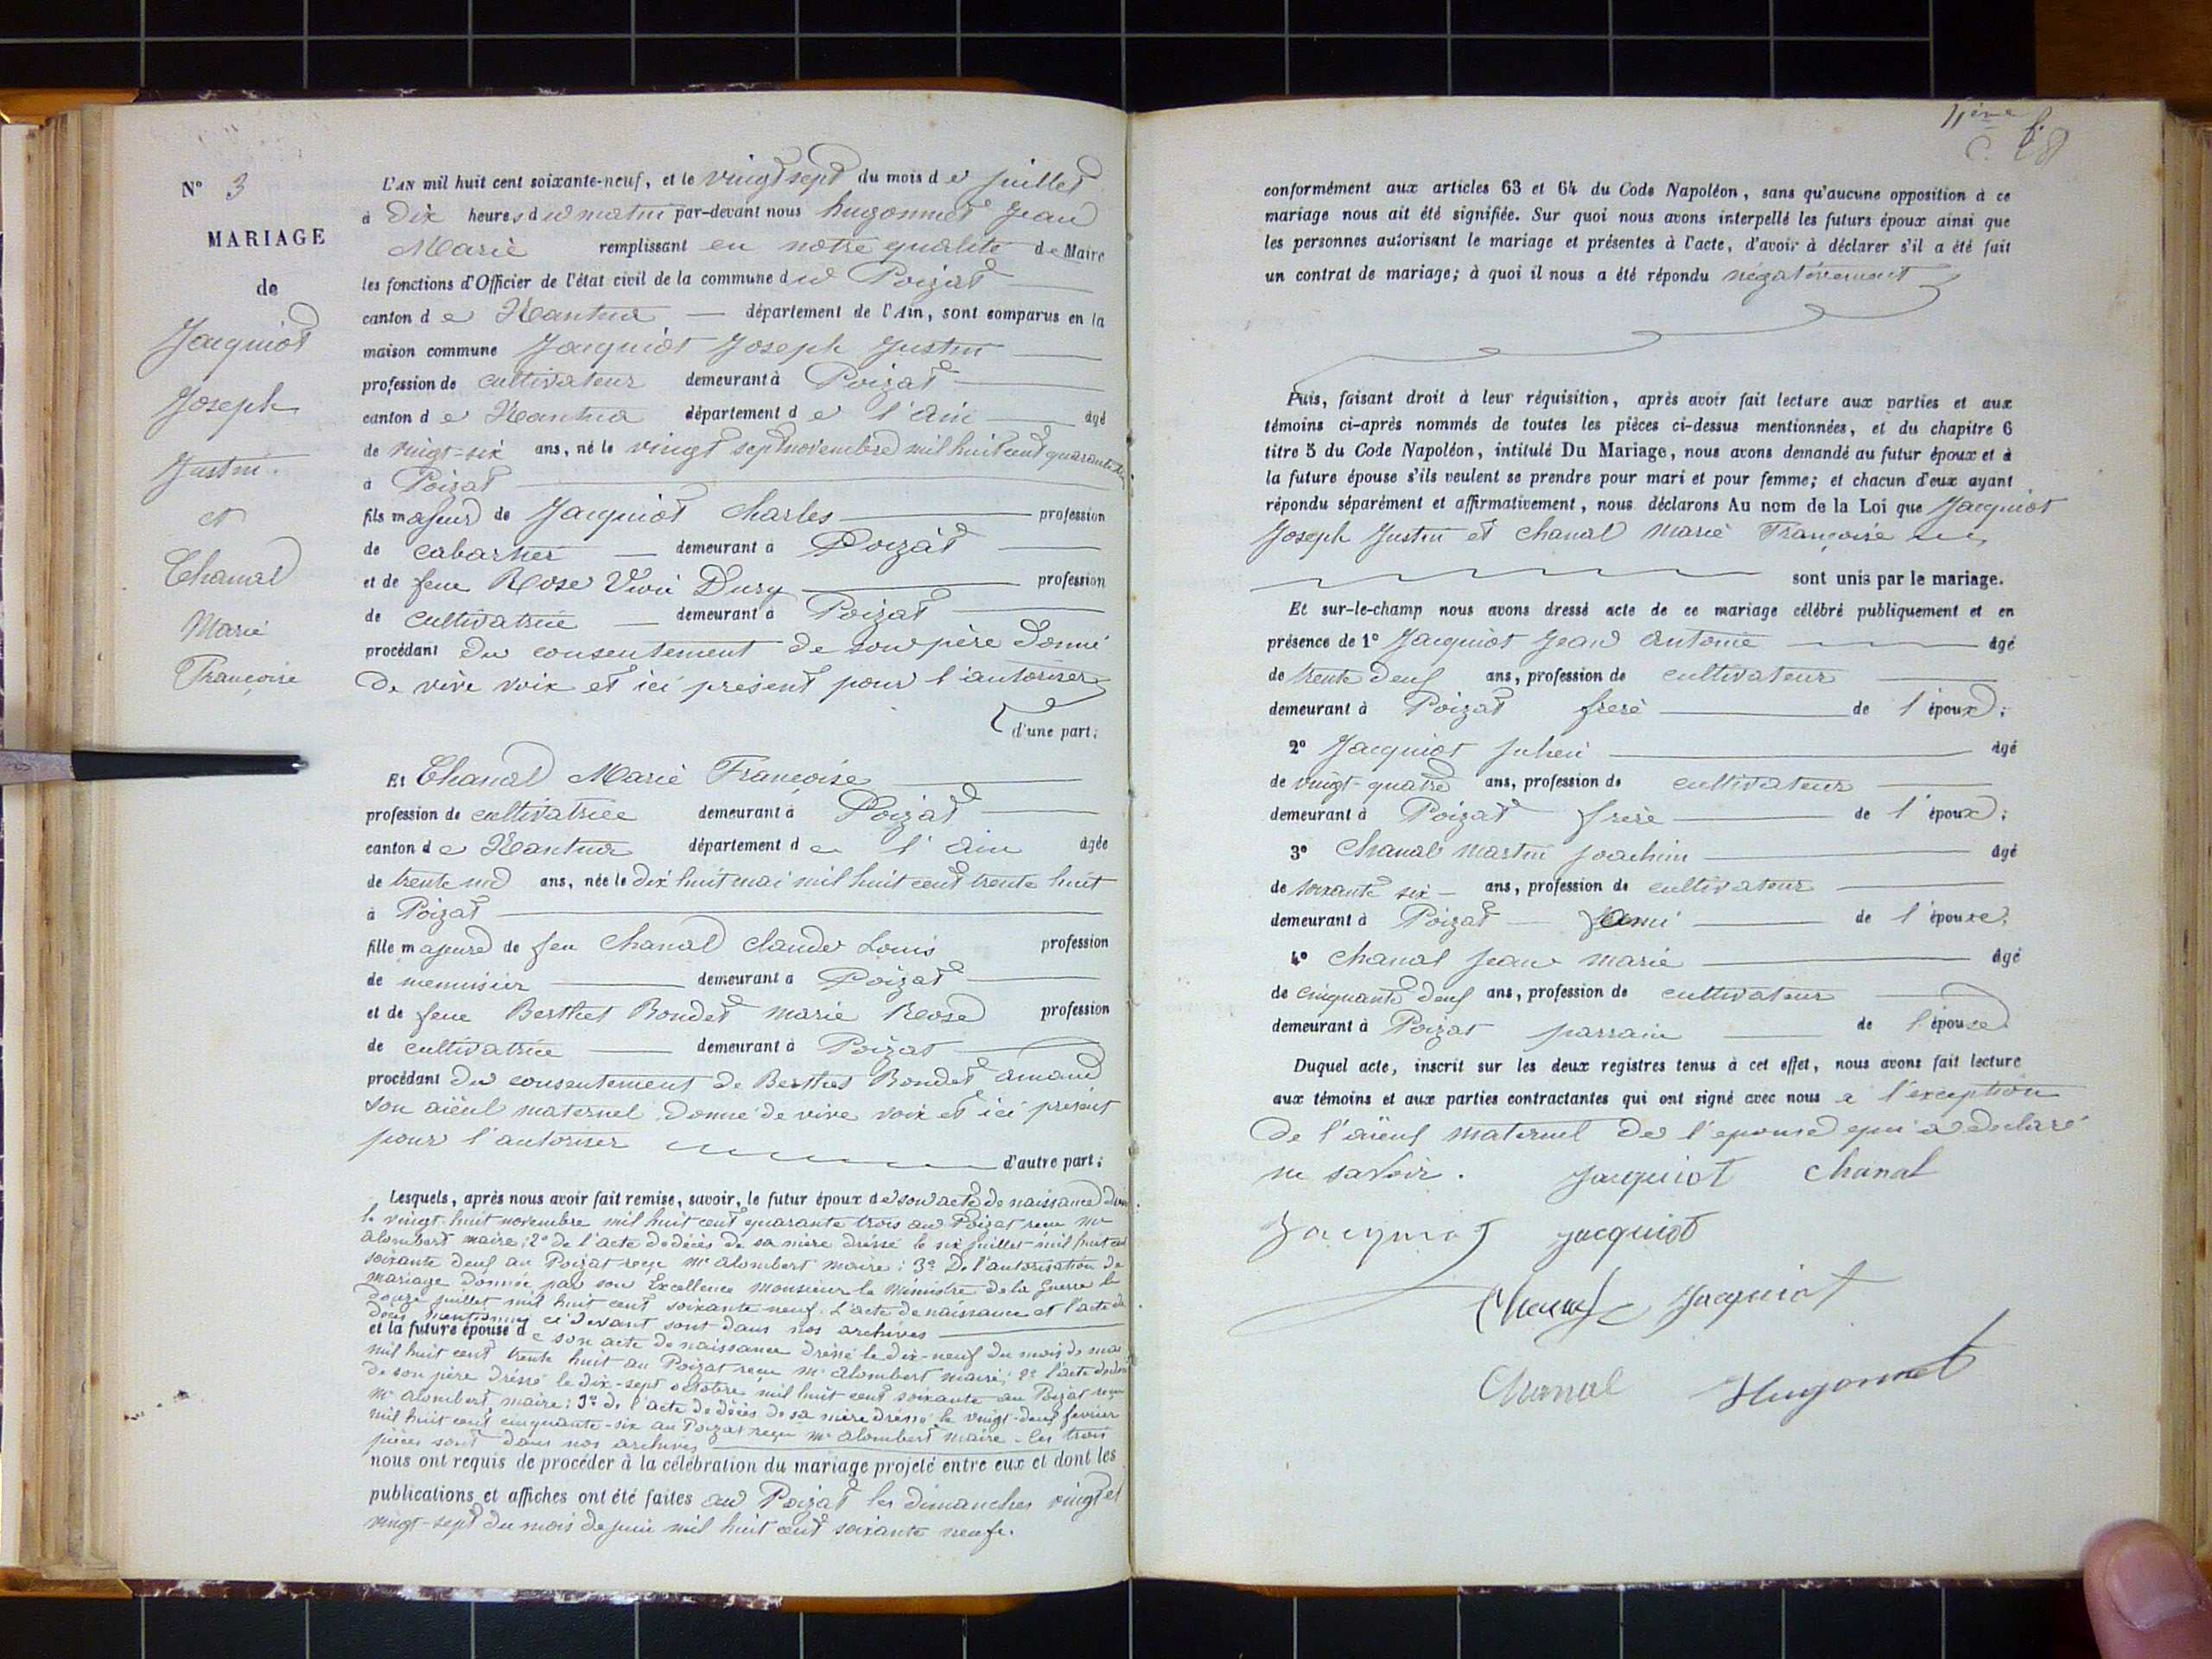 N° 3
MARIAGE
de
Jacquiot
Joseph
Justin.
et
Chanal
Marie
Françoise
L'AN mil huit cent soixante-neuf, et le vingt sept du mois de Juillet
à Dix heures du matin par-devant nous hugonnet Jean
Marie remplissant en notre qualité de Maire
les fonctions d'Officier de l'état civil de la commune du Poizat
canton de Nantua département de l'Ain, sont comparus en la
maison commune Jacquiot Joseph Justin
profession de cultivateur demeurant à Poizat
canton de Nantua département de l'Ain âgé
de vingt-six ans, né le vingt sept novembre mil huit cent quarante
à Poizat
fils majeur de Jacquiot Charles profession
de cabartier demeurant à Poizat
et de feue Rose Vivi Dury profession
de cultivatrice demeurant à Poizat
procédant du consentement de son père Donné
De vive voix et ici présent pour l'autoriser
d'une part;
Et Chanal Marie Françoise
profession de cultivatrice demeurant à Poizat
canton de Nantua département de l'Ain âgée
de trente un ans, née le dix huit mai mil huit cent trente huit
à Poizat
fille majeure de feu Chanal Claude Louis profession
de menuisier demeurant à Poizat
et de feue Berthet Bondet Marie Rose profession
de cultivatrice demeurant à Poizat
procédant du consentement de Berthet Bondet amand
son aïeul maternel Donné de vive voix et ici présent
pour l'autoriser
d'autre part;
Lesquels, après nous avoir fait remise, savoir, le futur époux de son acte de naissance
le vingt-huit novembre mil huit cent quarante trois au Poizat reçu Mr
alombert maire; 2° de l'acte de décès de sa mère dressé le six juillet mil huit cent
soixante deux au Poizat reçu Mr alombert maire; 3° De l'autorisation de
mariage donnée par son Excellence Monsieur le Ministre de la Guerre le
douze juillet mil huit cent soixante neuf. L'acte de naissance et l'acte de
décès mentionnés ci devant sont dans nos archives
et la future épouse de son acte de naissance dressé le dix-neuf du mois de mai
mil huit cent trente huit au Poizat reçu Mr alombert maire; 2° l'acte de décès
de son père dressé le dix-sept octobre mil huit cent soixante au Poizat reçu
Mr alombert, maire; 3° de l'acte de décès de sa mère dressé le vingt-deux février
mil huit cent cinquante-six au Poizat reçu Mr alombert maire - les trois
pièces sont dans nos archives
nous ont requis de procéder à la célébration du mariage projeté entre eux et dont les
publications et affiches ont été faites au Poizat les dimanches vingt et
vingt-sept du mois de juin mil huit cent soixante neuf.
conformément aux articles 63 et 64 du Code Napoléon, sans qu'aucune opposition à ce
mariage nous ait été signifiée. Sur quoi nous avons interpellé les futurs époux ainsi que
les personnes autorisant le mariage et présentes à l'acte, d'avoir à déclarer s'il a été fait
un contrat de mariage; à quoi il nous a été répondu négativement
Puis, faisant droit à leur réquisition, après avoir fait lecture aux parties et aux
témoins ci-après nommés de toutes les pièces ci-dessus mentionnées, et du chapitre 6
titre 5 du Code Napoléon, intitulé Du Mariage, nous avons demandé au futur époux et à
la future épouse s'ils veulent se prendre pour mari et pour femme; et chacun d'eux ayant
répondu séparément et affirmativement, nous déclarons Au nom de la Loi que Jacquiot
Joseph Justin et Chanal Marie Françoise
sont unis par le mariage.
Et sur-le-champ nous avons dressé acte de ce mariage célébré publiquement et en
présence de 1° Jacquiot Jean Antoine âgé
de trente deux ans, profession de cultivateur
demeurant à Poizat frère de l'époux;
2° Jacquiot Julien âgé
de vingt-quatre ans, profession de cultivateur
demeurant à Poizat frère de l'époux;
3° Chanal Martin Joachim âgé
de soixante six ans, profession de cultivateur
demeurant à Poizat ami de l'épouse;
4° Chanal Jean Marie âgé
de cinquante deux ans, profession de cultivateur
demeurant à Poizat parrain de l'épouse.
Duquel acte, inscrit sur les deux registres tenus à cet effet, nous avons fait lecture
aux témoins et aux parties contractantes qui ont signé avec nous à l'exception
De l'aïeul maternel de l'épouse qui a déclaré
ne savoir. Jacquiot Chanal
Jacquiot Jacquiot
Chanal Jacquiot
Chanal Hugonnet